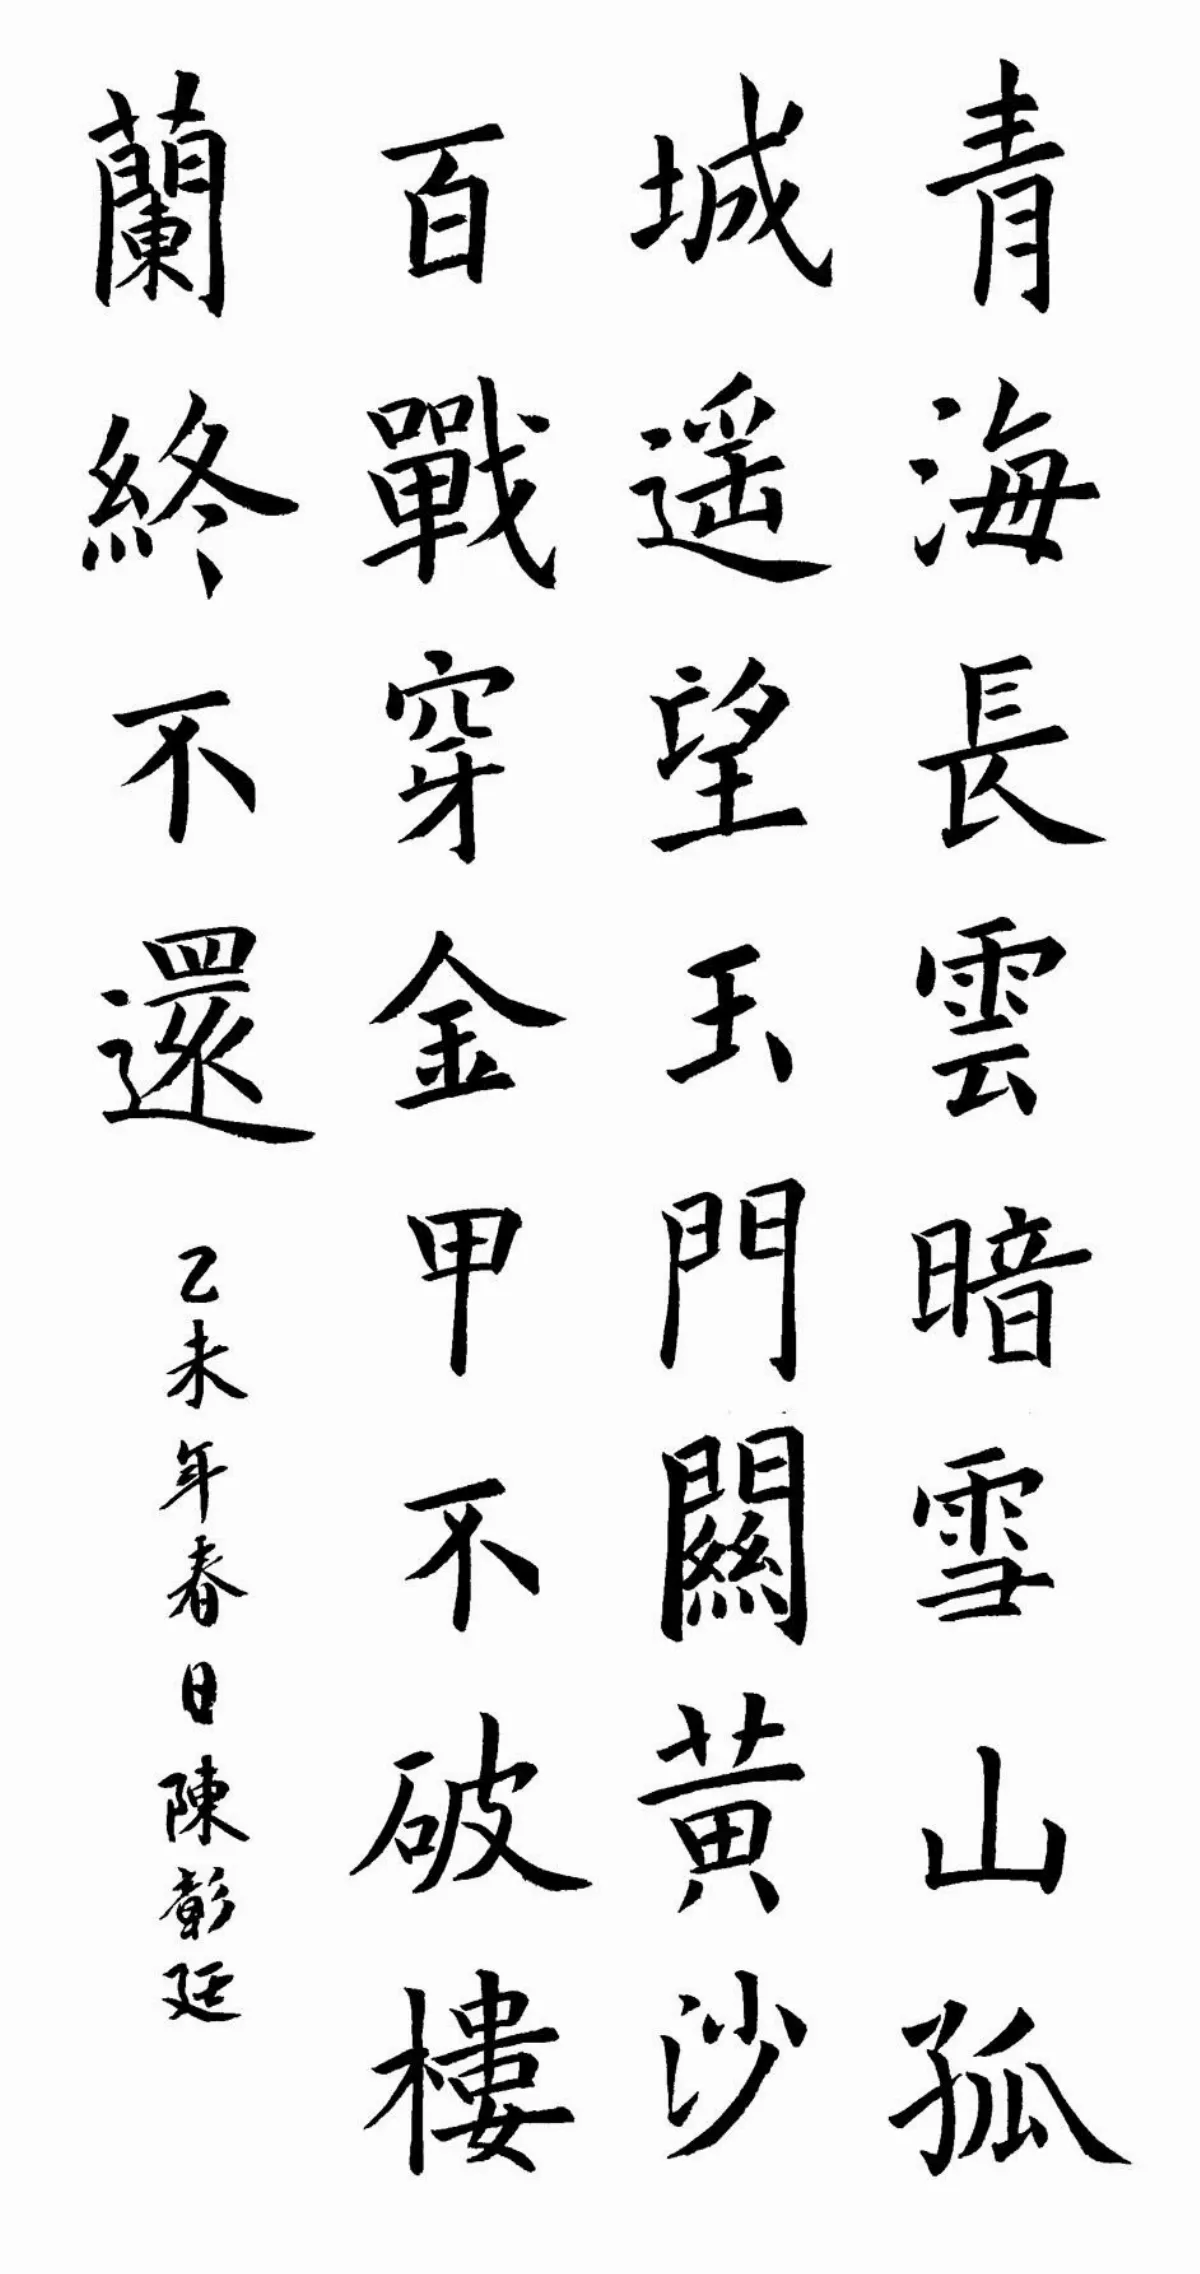 青海長雲暗雪山孤
城遥望玉門關黄沙
百戰穿金甲不破樓
蘭終不還
乙未年春日陳彰廷